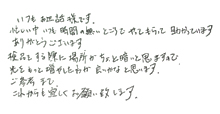 いつもお世話様です。
忙しい中 いつも時間の無いところ やってもらって 助かっています
ありがとうございます
検品する際に場所がちょっと暗いと思いますので
光をもっと増やした方が良いかなと思います。
ご参考まで
これからも宜しくお願い致します。